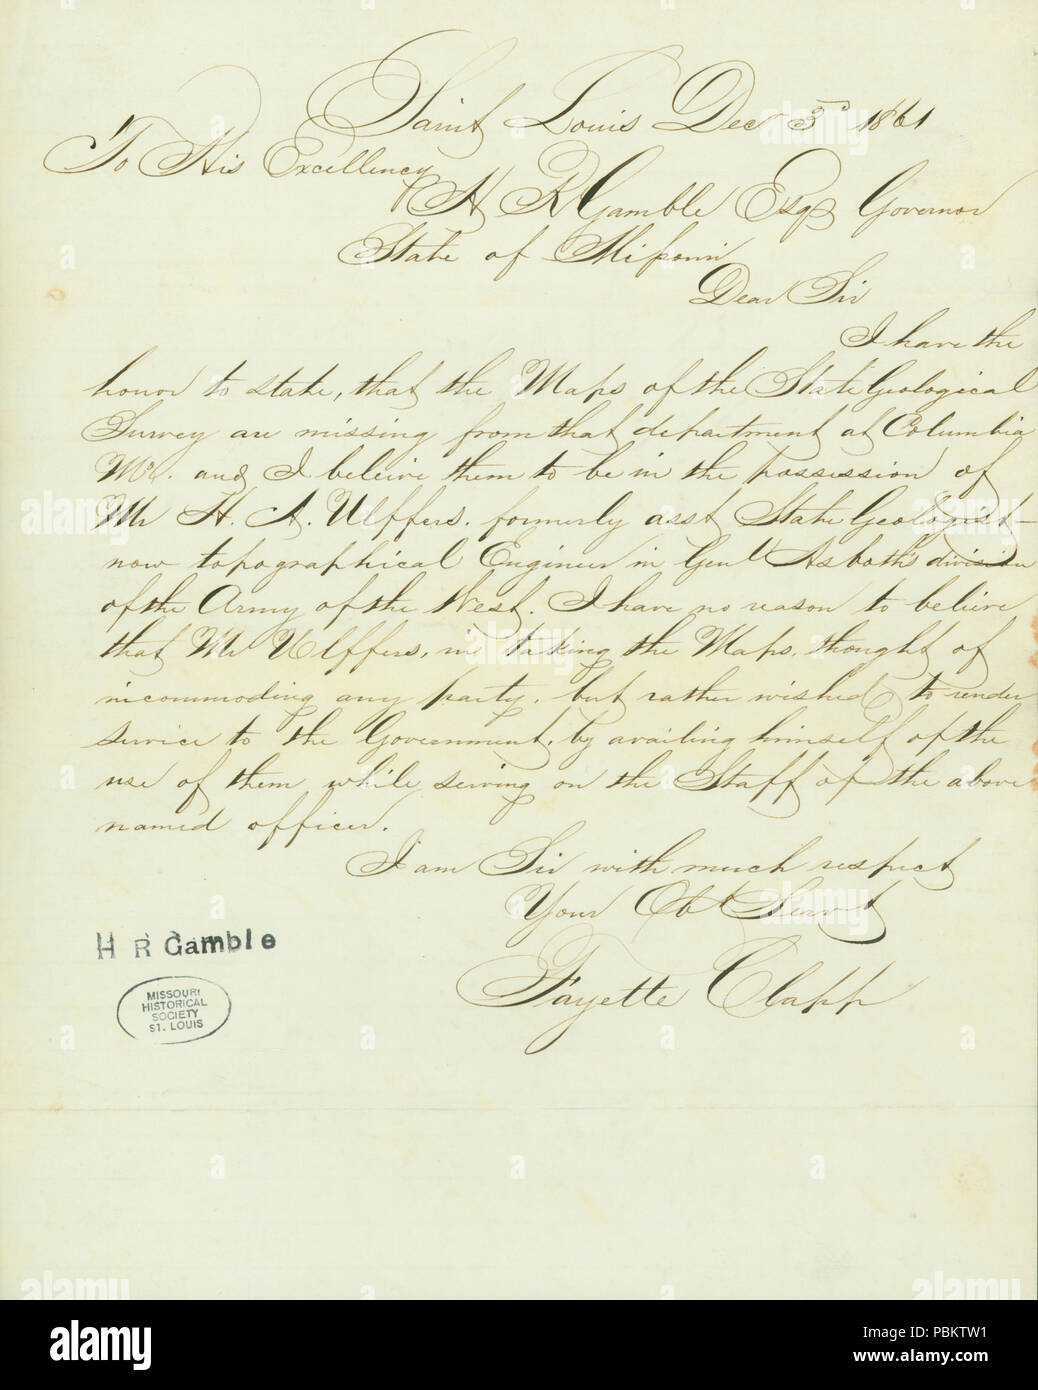 Saint Louis Dec 3d 1861
To His Excellency
H R Gamble Esqr Governor
State of Missouri
Dear Sir
I have the
honor to state, that the Maps of the State Geological
Survey are missing from that department at Columbia
Mo. and I beleive them to be in the possession of
Mr H. A. Ulffers. formerly asst State Geologist—
now topographical Engineer in Genl Asboth's division
of the Army of the West. I have no reason to believe
that Mr Ulffers, in taking the Maps, thought of
incommoding any party. but rather wished to render
service to the Government. by availing himself of the
use of them while serving on the Staff of the above
named officer.
I am Sir with much respect
Your Obt Servt
Fayette Clapp
H R Gamble
MISSOURI
HISTORICAL
SOCIETY
ST. LOUIS
alamy
Image ID: PBKTW1
www.alamy.com